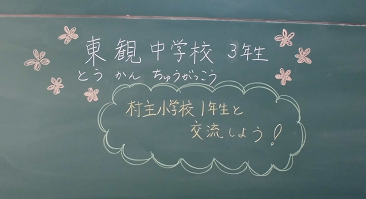 東観中学校 3年生
とうかんちゅうがっこう
村主小学校1年生と
交流しよう!